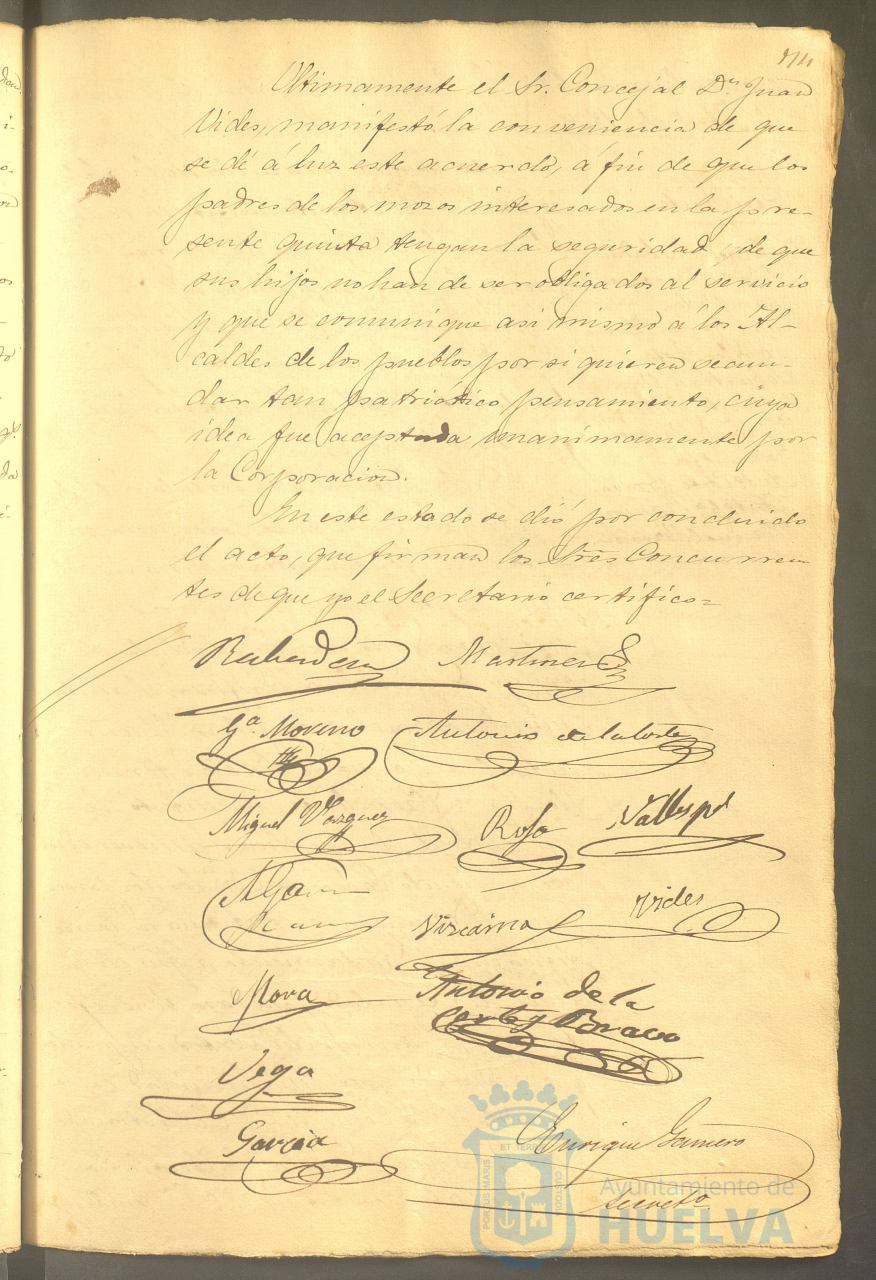 Ultimamente el Sr. Concejal Dn. Juan
Vides, manifestó la conveniencia de que
se dé á luz este acuerdo, á fin de que los
padres de los mozos interesados en la pre-
sente quinta tengan la seguridad de que
sus hijos no han de ser obligados al servicio
y que se comunique asi mismo á los Al-
caldes de los pueblos por si quieren secun-
dar tan patriótico pensamiento, cuya
idea fue aceptada unanimamente por
la Corporacion.
En este estado se dió por concluido
el acto, que firman los Sres Concurren
tes de que yo el Secretario certifico=
Martinez
Ga. Moreno Antonio de la Corte
Miguel Vazquez Rofa
Vizcaino Vides
Mora Antonio de la
Corte y Bravo
Vega
Garcia Enrique Gamero
Secreto
ET TERRE
PORTUS MARIS
CUSTODIA
Ayuntamiento de
HUELVA